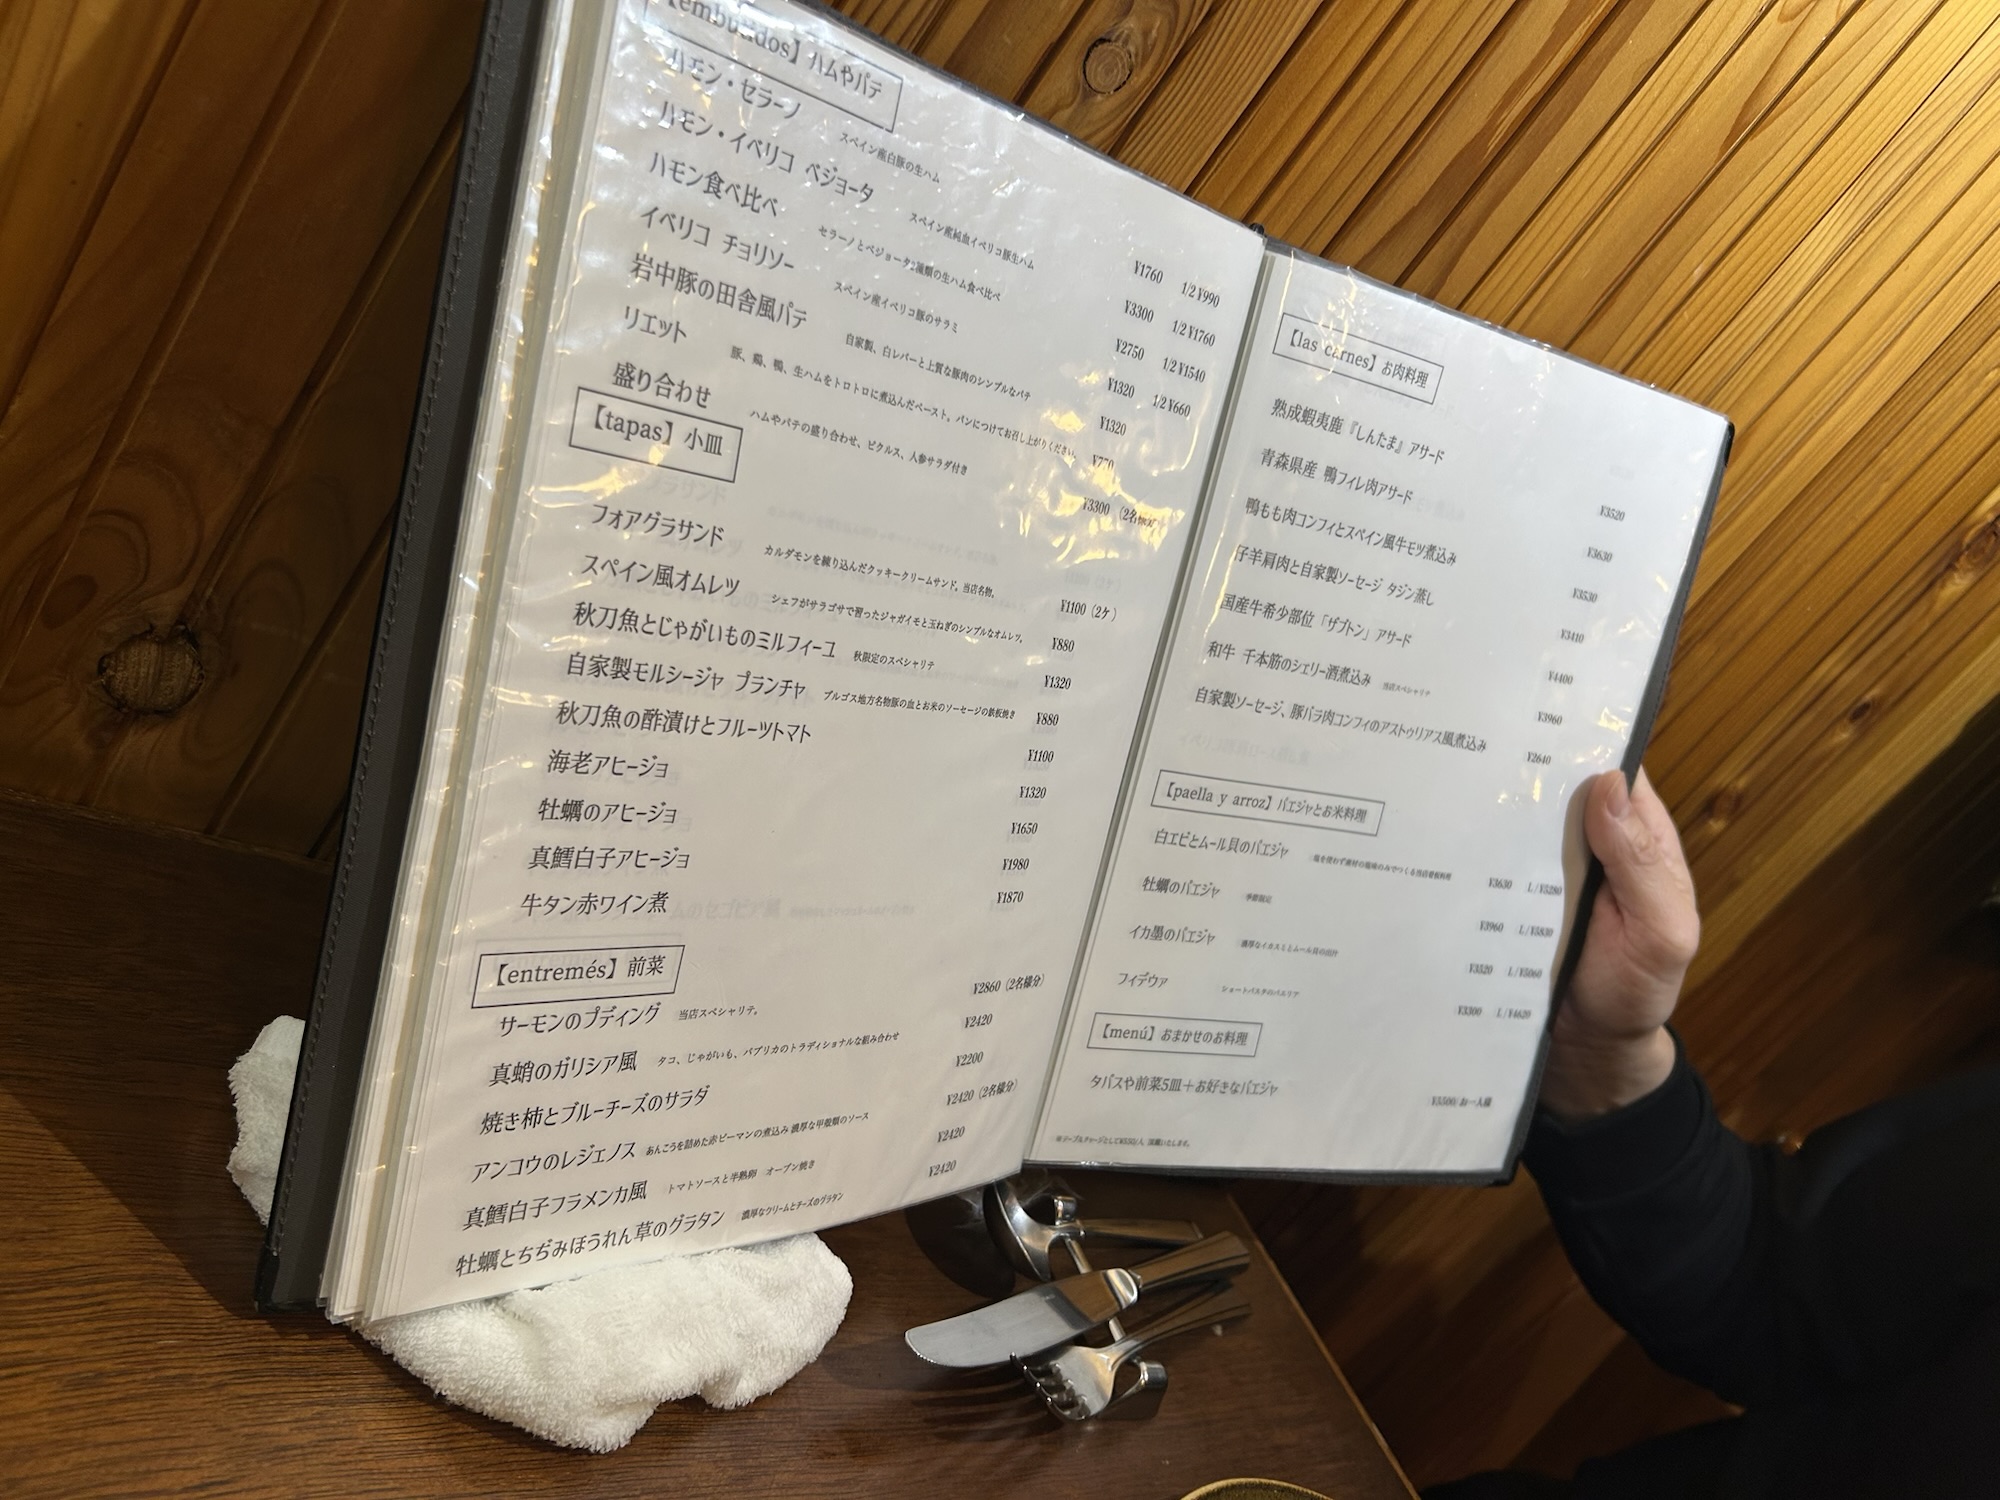 【embutidos】ハムやパテ
ハモン・セラーノ スペイン産白豚の生ハム ¥1760 1/2 ¥990
ハモン・イベリコ ベジョータ スペイン産純血イベリコ豚生ハム ¥3300 1/2 ¥1760
ハモン食べ比べ セラーノとベジョータ2種類の生ハム食べ比べ ¥2750 1/2 ¥1540
イベリコ チョリソー スペイン産イベリコ豚のサラミ ¥1320 1/2 ¥660
岩中豚の田舎風パテ 自家製、白レバーと上質な豚肉のシンプルなパテ ¥1320
リエット 豚、鶏、鴨、生ハムをトロトロに煮込んだペースト。パンにつけてお召し上がりください。 ¥770
盛り合わせ ハムやパテの盛り合わせ、ピクルス、人参サラダ付き ¥3300 (2名様分)
【tapas】小皿
フォアグラサンド カルダモンを練り込んだクッキークリームサンド。当店名物。 ¥1100 (2ケ)
スペイン風オムレツ シェフがサラゴサで習ったジャガイモと玉ねぎのシンプルなオムレツ。 ¥880
秋刀魚とじゃがいものミルフィーユ 秋限定のスペシャリテ ¥1320
自家製モルシージャ プランチャ ブルゴス地方名物豚の血とお米のソーセージの鉄板焼き ¥880
秋刀魚の酢漬けとフルーツトマト ¥1100
海老アヒージョ ¥1320
牡蠣のアヒージョ ¥1650
真鱈白子アヒージョ ¥1980
牛タン赤ワイン煮 ¥1870
【entremés】前菜
サーモンのプディング 当店スペシャリテ。 ¥2860 (2名様分)
真蛸のガリシア風 タコ、じゃがいも、パプリカのトラディショナルな組み合わせ ¥2420
焼き柿とブルーチーズのサラダ ¥2200
アンコウのレジェノス あんこうを詰めた赤ピーマンの煮込み 濃厚な甲殻類のソース ¥2420 (2名様分)
真鱈白子フラメンカ風 トマトソースと半熟卵 オーブン焼き ¥2420
牡蠣とちぢみほうれん草のグラタン 濃厚なクリームとチーズのグラタン ¥2420
【las carnes】お肉料理
熟成蝦夷鹿『しんたま』アサード ¥3520
青森県産 鴨フィレ肉アサード ¥3630
鴨もも肉コンフィとスペイン風牛モツ煮込み ¥3530
仔羊肩肉と自家製ソーセージ タジン蒸し ¥3410
国産牛希少部位「ザブトン」アサード ¥4400
和牛 千本筋のシェリー酒煮込み 当店スペシャリテ ¥3960
自家製ソーセージ、豚バラ肉コンフィのアストゥリアス風煮込み ¥2640
【paella y arroz】パエジャとお米料理
白エビとムール貝のパエジャ ¥3630 L/¥5280
牡蠣のパエジャ 季節限定 ¥3960 L/¥5830
イカ墨のパエジャ 濃厚なイカスミとムール貝の出汁 ¥3520 L/¥5060
フィデウァ ショートパスタのパエリア ¥3300 L/¥4620
【menú】おまかせのお料理
タパスや前菜5皿＋お好きなパエジャ ¥5500/お一人様
※テーブルチャージとして¥550/人 頂戴いたします。